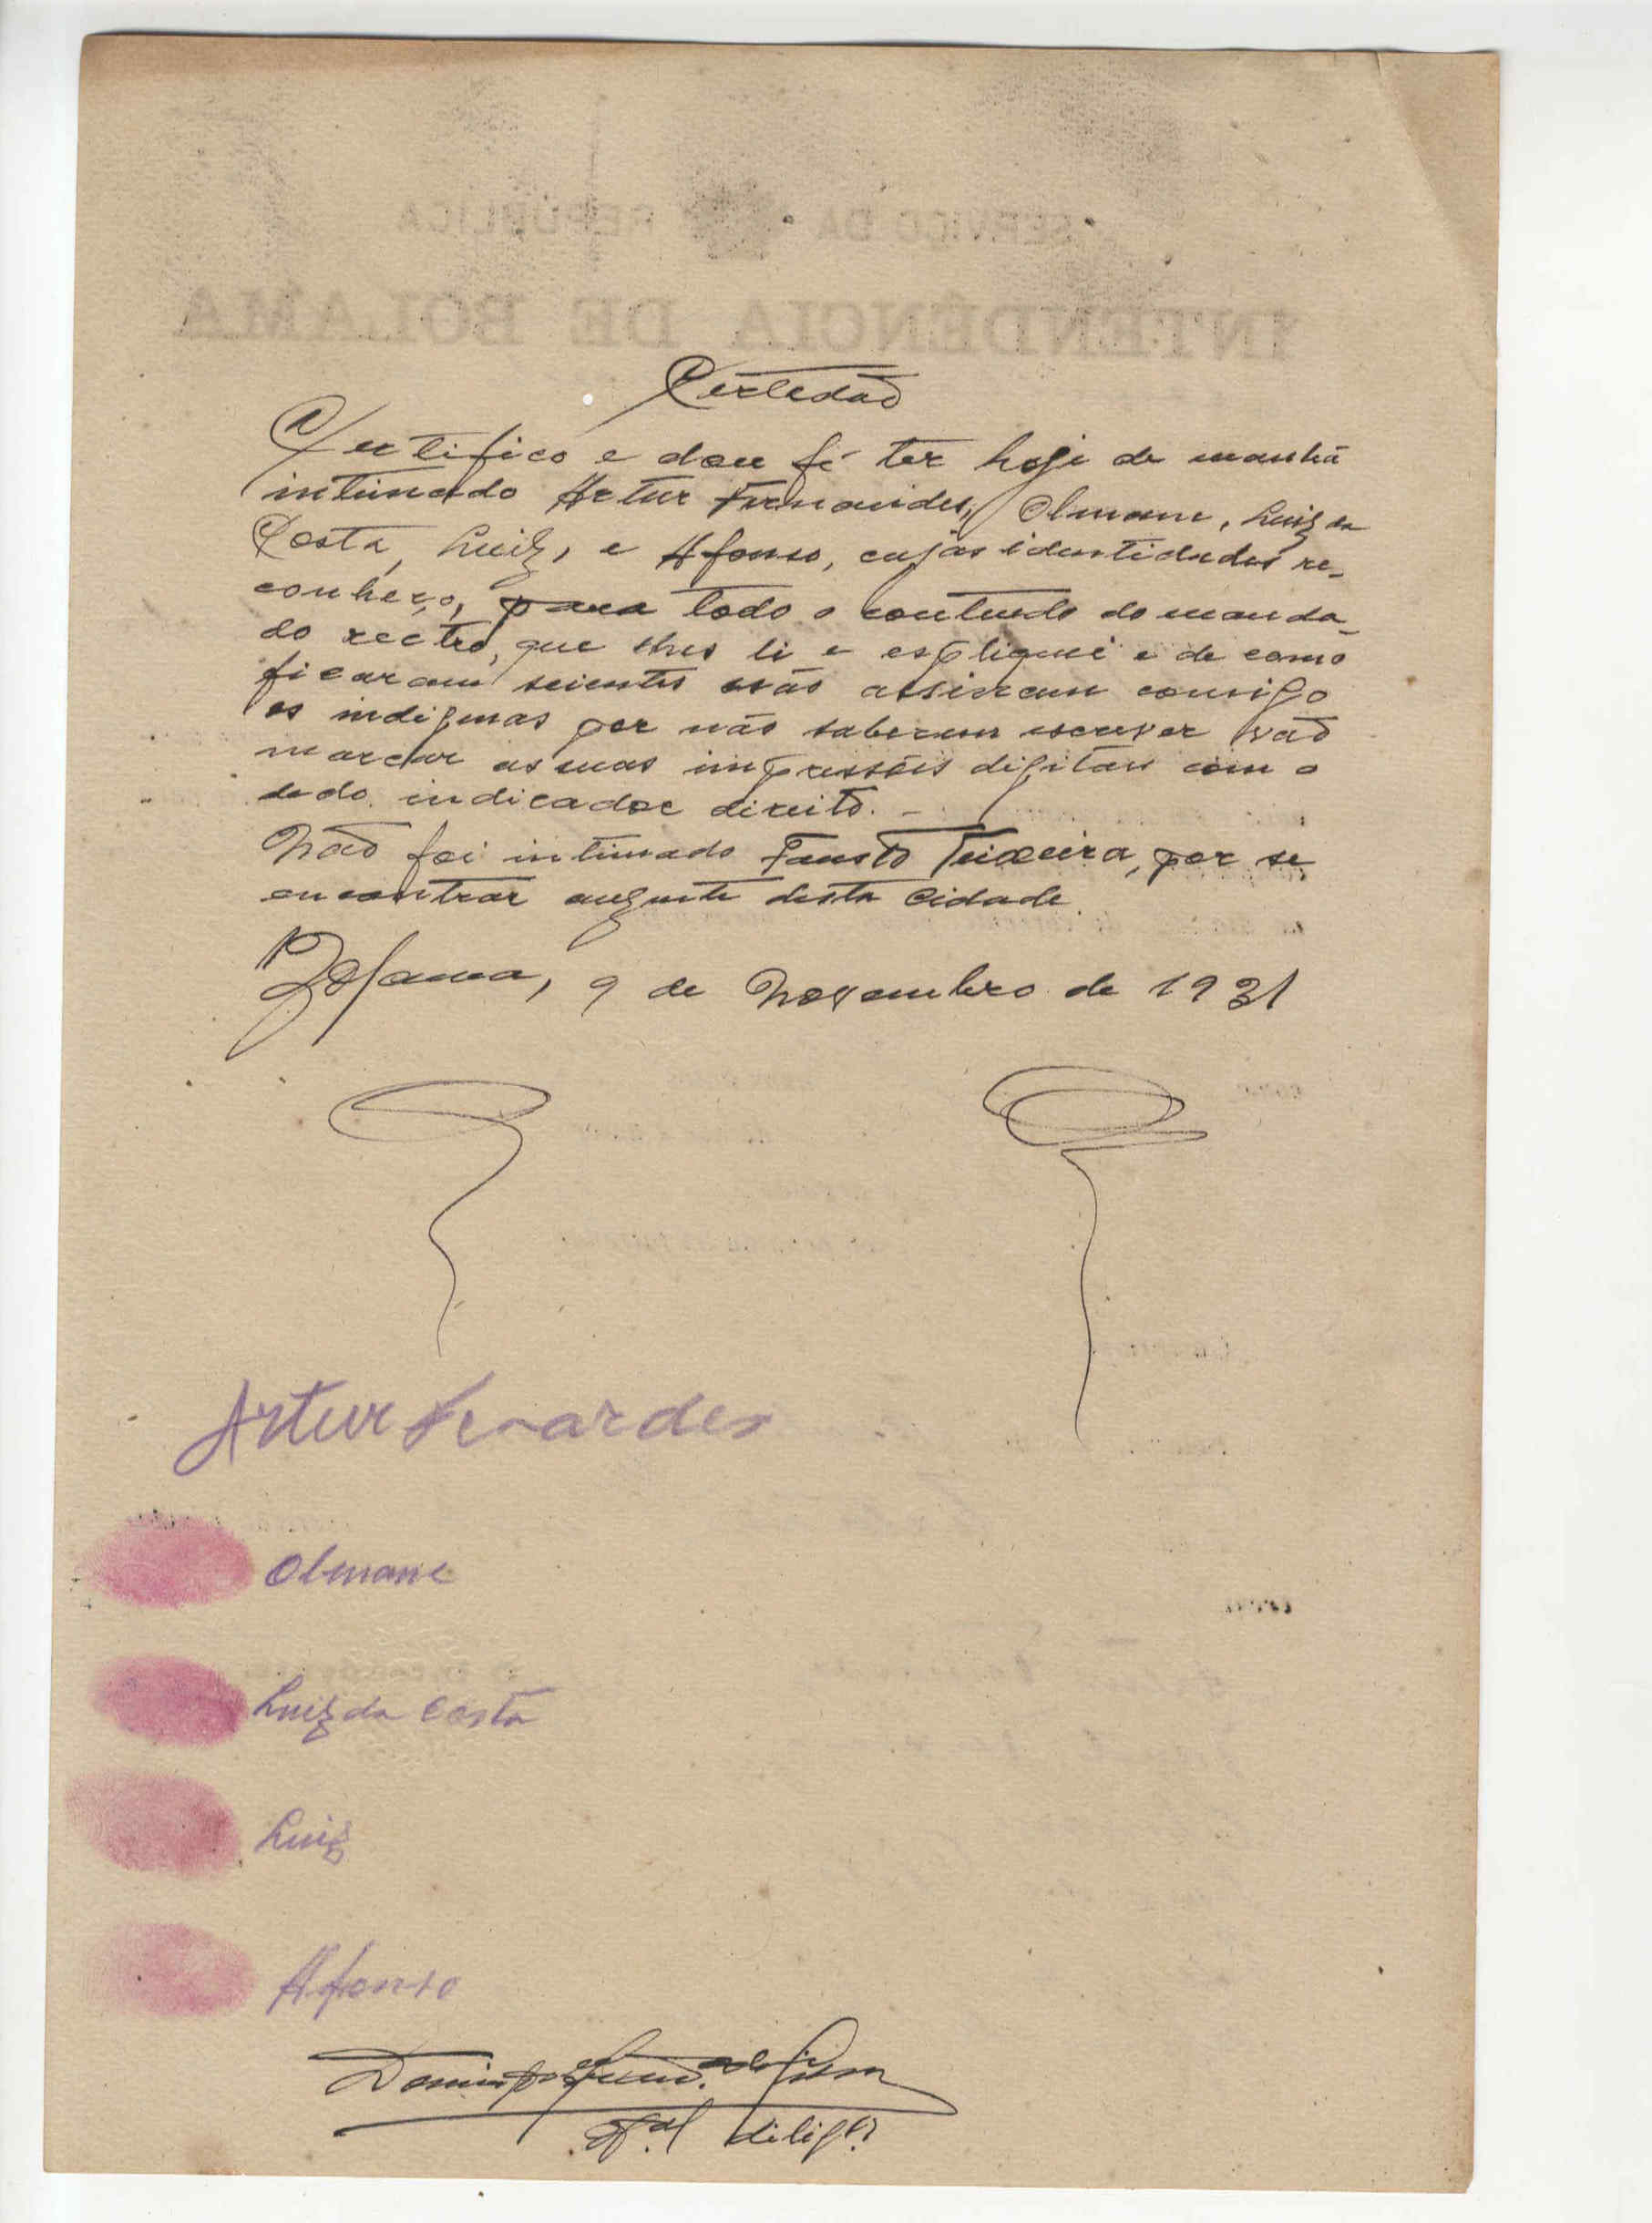 SERVIÇO DA REPÚBLICA
INTENDÊNCIA DE BOLAMA
Certedão
Certifico e dou fé ter hoje de manhã
intimado Artur Fernandes, Olmane, Luiz da
Costa, Luiz, e Afonso, cujas identidades re-
conheço, para todo o contiudo do manda-
do rectro, que lhes li e espliquei e de como
ficaram scientes vão assinam comigo
os indigenas por não saberem escrever vão
marcar as suas impressõis digitais com o
dedo indicador direito. -
Não foi intimado Fausto Teixeira, por se
encontrar auzente desta Cidade.
Bolama, 9 de Novembro de 1931
Artur Fernardes
Olmane
Luiz da Costa
Luiz
Afonso
Domingos